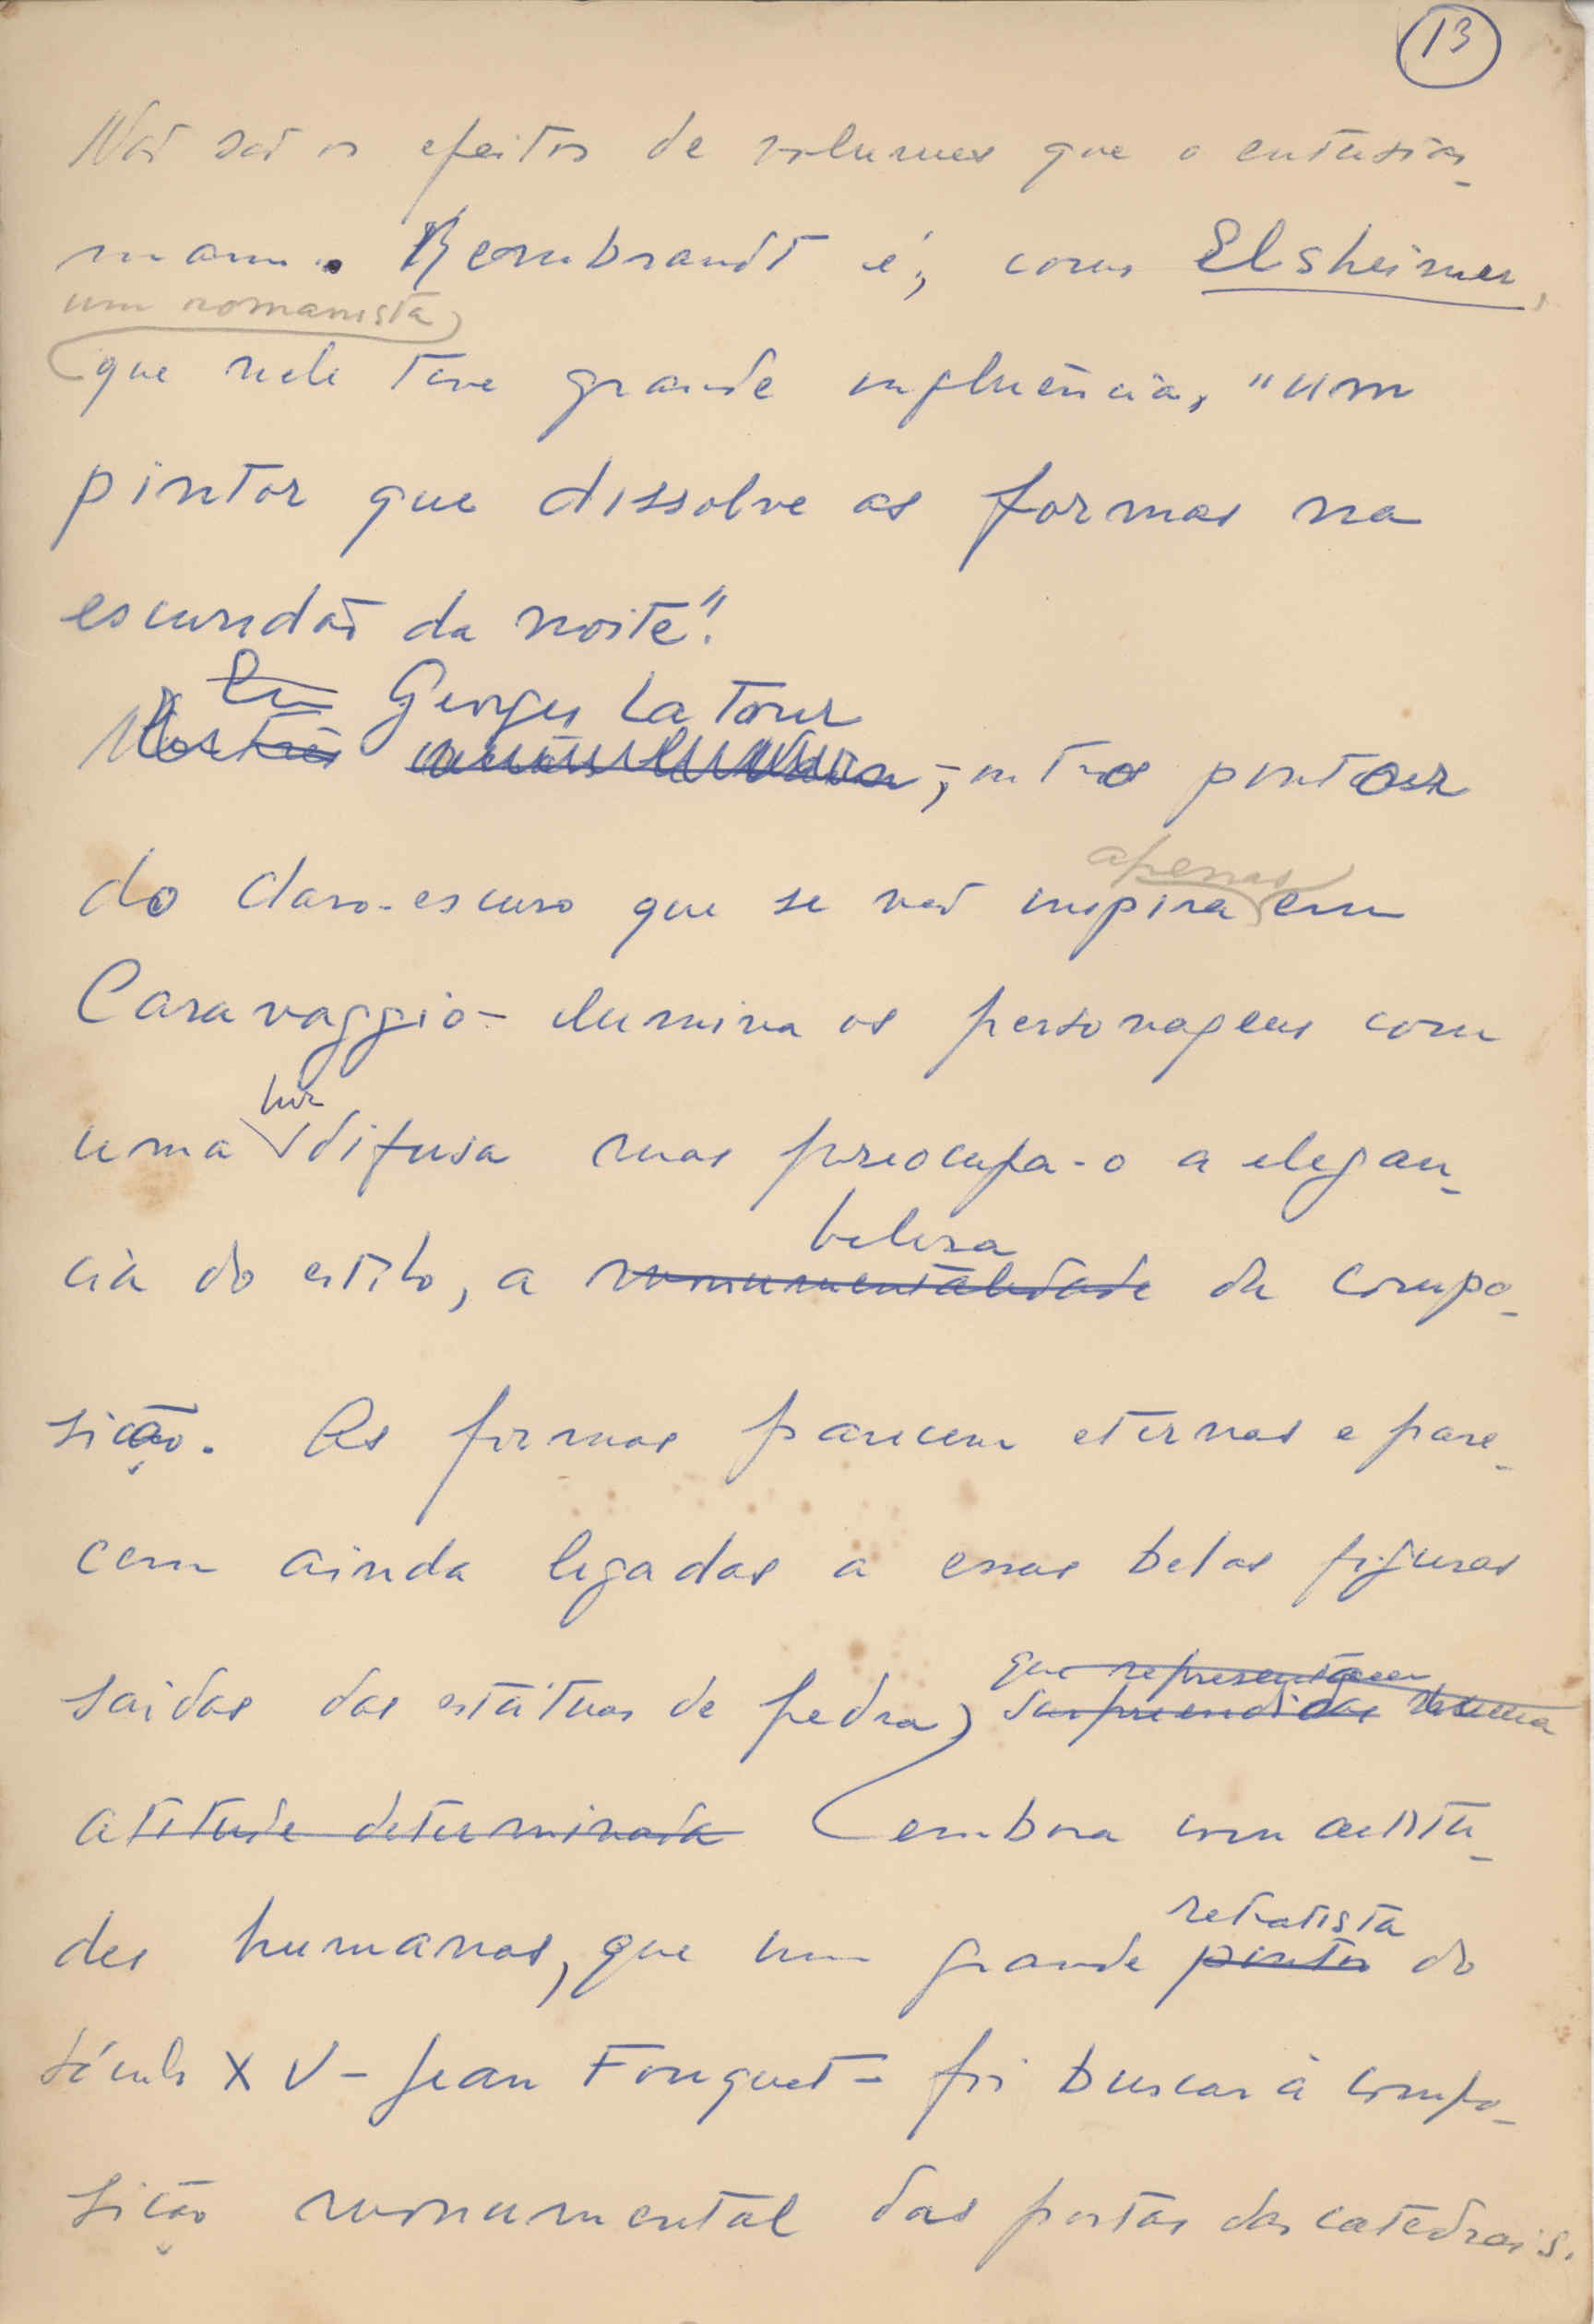 13
Não são os efeitos de volumes que o entusias-
mam. Rembrandt é, como Elsheimer,
um romanista
que nele teve grande influência, "um
pintor que dissolve as formas na
escuridão da noite".
Georges La Tour
, outro pintor
apenas
do claro-escuro que se não inspira em
Caravaggio - ilumina os personagens com
luz
uma difusa mas preocupa-o a elegan-
beleza
cia do estilo, a monumentalidade da compo-
sição. As formas parecem eternas e pare-
cem ainda ligadas a essas belas figuras
que representavam
saidas das estátuas de pedra, surpreendidas numa
atitude determinada embora com atitu-
retratista
des humanas, que um grande pintor do
século XV - Jean Fouquet - foi buscar à compo-
sição monumental das portas das catedrais.